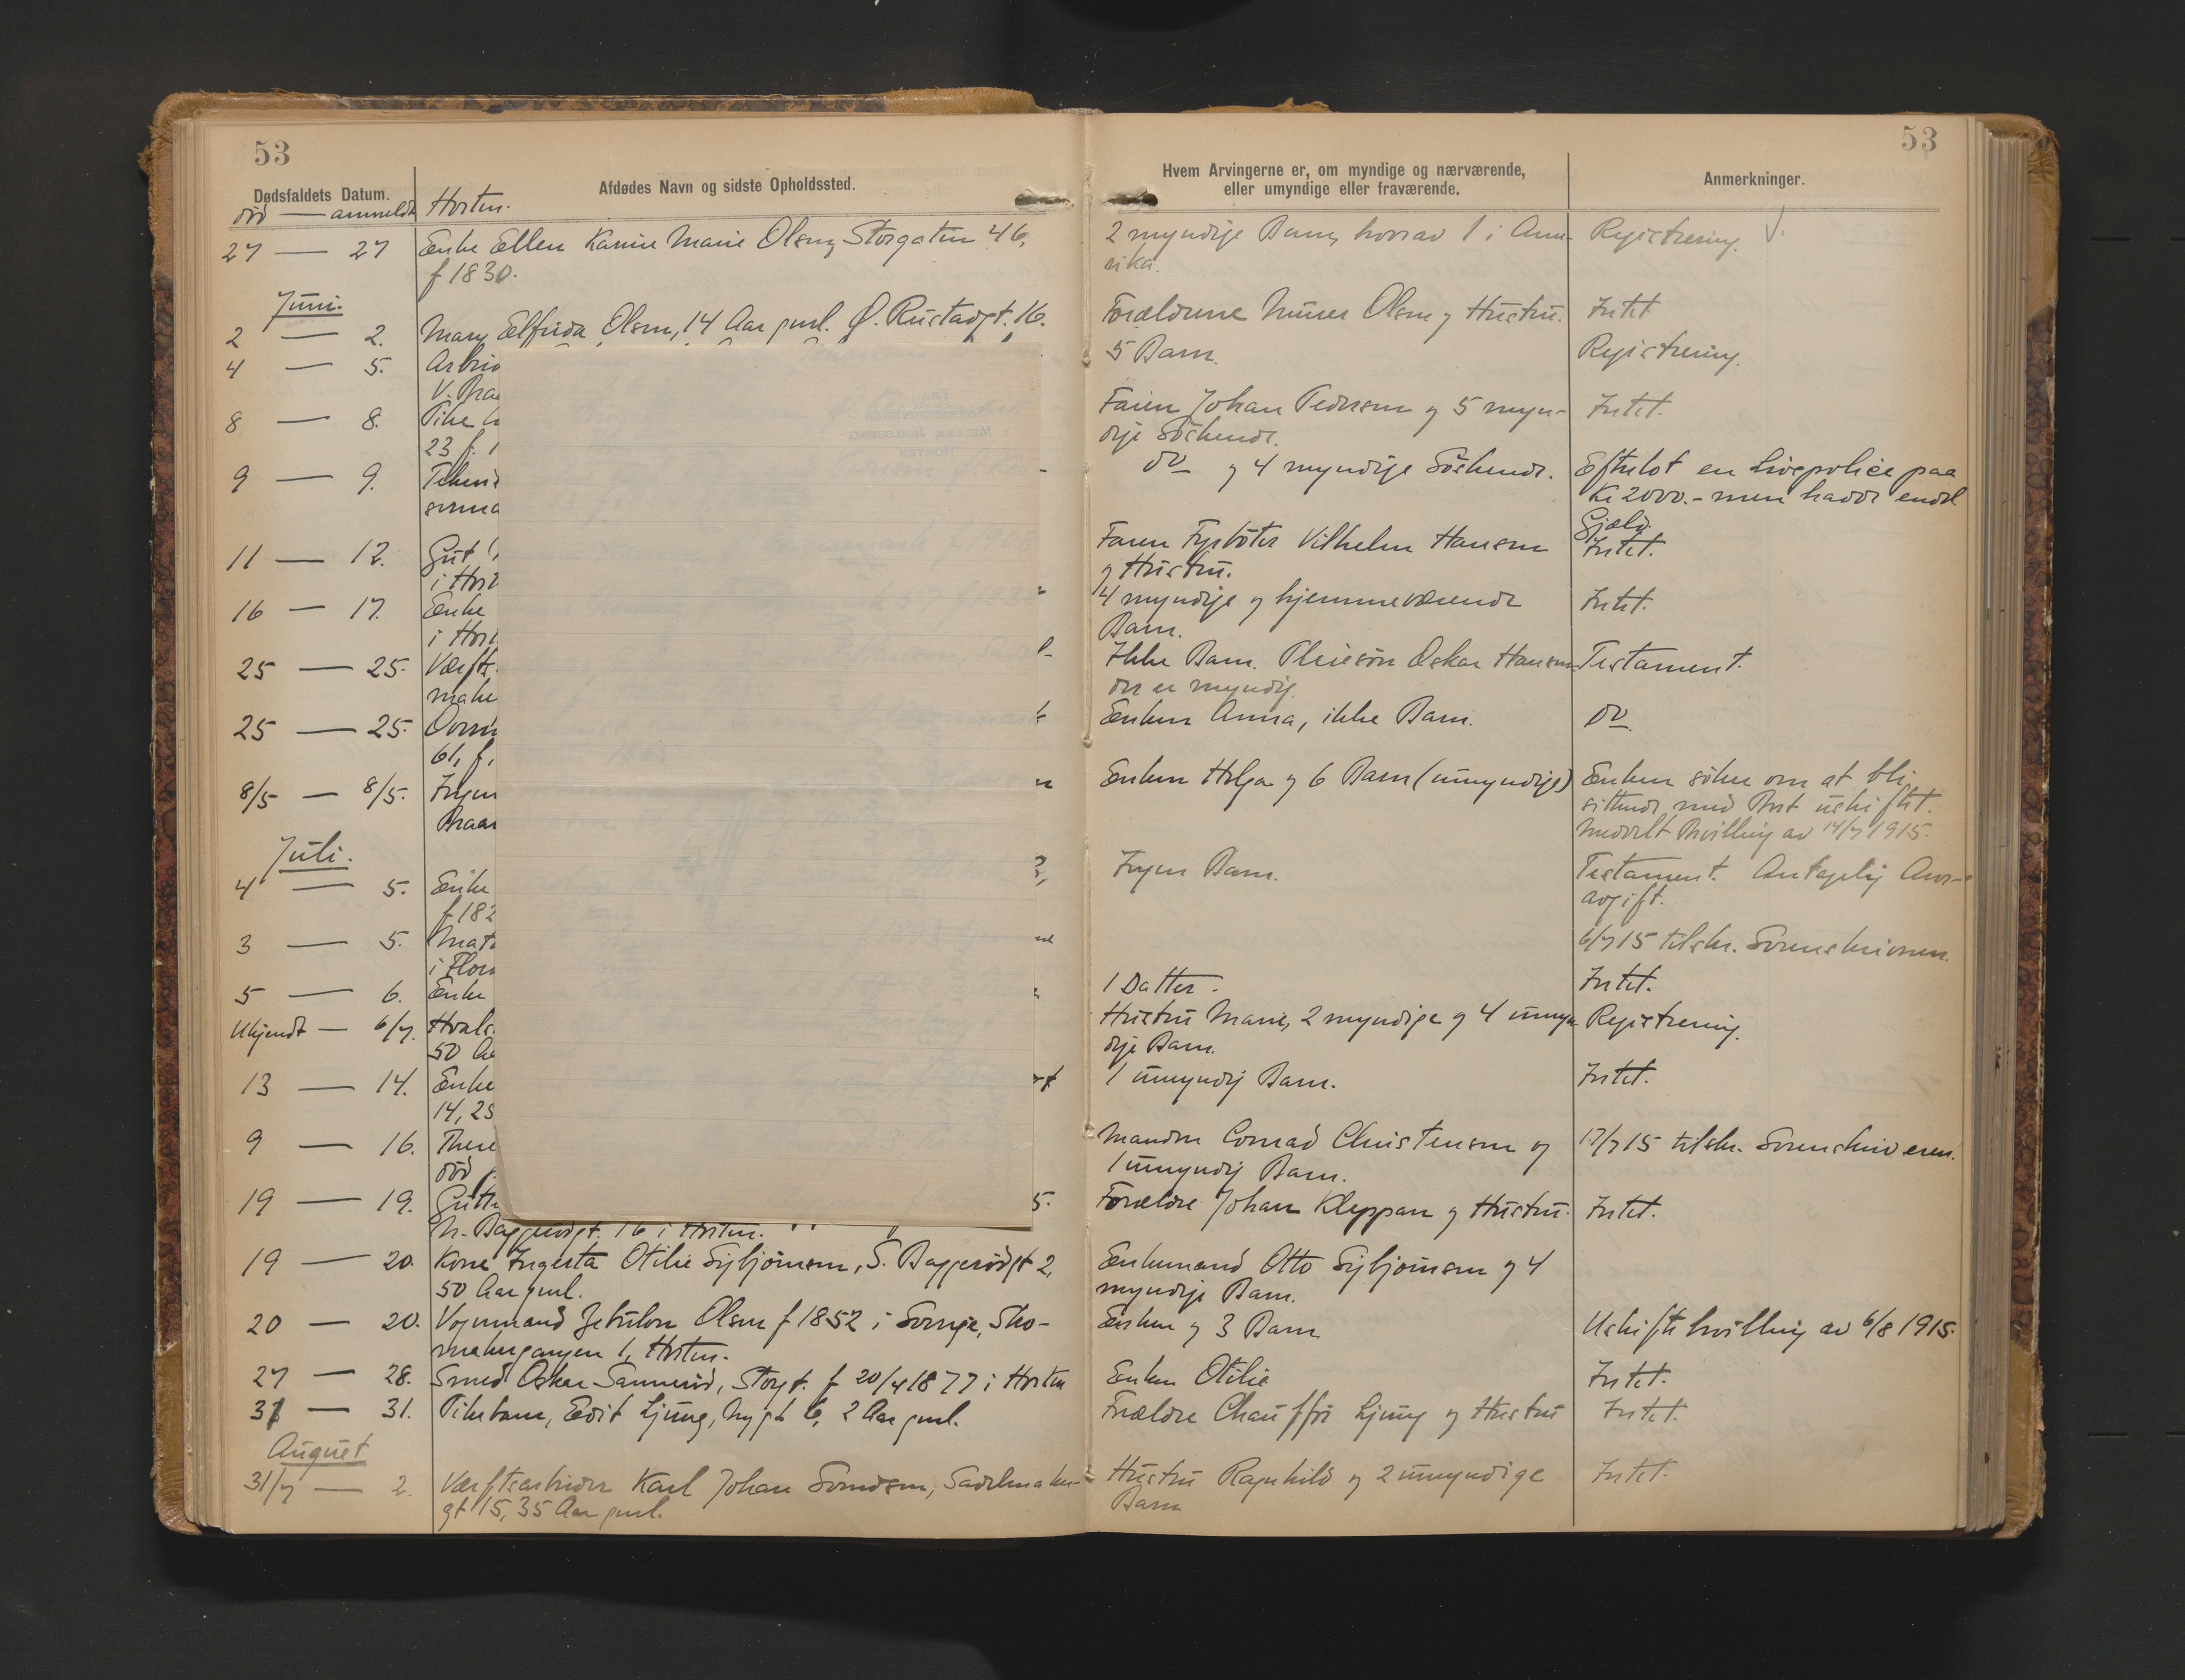 53
Dødsfaldets Datum.
Afdødes Navn og sidste Opholdssted.
død — anmeldt
Horten.
27 — 27 Enke Ellen Karine Marie Olsen, Storgaten 46,
f 1830.
Juni.
2 — 2. Mary Elfrida Olsen, 14 Aar gml. Ø. Rustadgt. 16.
4 — 5.
8 — 8.
23 f.
9 — 9.
11 — 12. Gut
16 — 17. Enke
i
25 — 25.
25 — 25.
61, f.
8/5 — 8/5.
Juli.
4 — 5. Enke
f 182
3 — 5.
i
5 — 6. Enke
Ukjendt — 6/7.
50
13 — 14. Enke
14, 25
9 — 16.
død
19 — 19.
N. Baggerødgt. 16 i Horten.
19 — 20. Kone Ingerta Otilie Sigbjørnsen, S. Baggerødgt 2,
50 Aar gml.
20 — 20. Vognmand Zebulon Olsen f 1852 i Sverige, Sko-
makergangen 1, Horten.
27 — 28. Smed Oskar Sannerød, Storgt. f 20/4 1877 i Horten
31 — 31. Pikebarn, Edit Ljung, Nygt 6, 2 Aar gml.
August
31/7 — 2. Værftsarbeider Karl Johan Svendsen, Sadelmaker-
gt 15, 35 Aar gml.
53
Hvem Arvingerne er, om myndige og nærværende,
eller umyndige eller fraværende.
Anmerkninger.
2 myndige Barn, hvorav 1 i Ame- Registrering.
rika.
Forældrene Murer Olsen og Hustru. Intet
5 Barn. Registrering.
Faren Johan Pedersen og 5 myn- Intet.
dige Søskende.
do og 4 myndige Søskende. Efterlot en Livspolice paa
Kr 2000.- men havde endel
Gjæld.
Faren Fyrbøter Vilhelm Hansen Intet.
og Hustru.
4 myndige og hjemmeværende Intet.
Barn.
Ikke Barn. Pleiesøn Oskar Hansen Testament.
der er myndig.
Enken Anna, ikke Barn. do
Enken Helga og 6 Barn (umyndige) Enken søker om at bli
sittende med Boet uskiftet.
Meddelt Bevilling av 14/7 1915.
Ingen Barn. Testament. Antagelig Arve-
avgift.
6/7 15 tilskr. Sorenskriveren.
1 Datter. Intet.
Hustru Marie, 2 myndige og 4 umyn Registrering.
dige Barn.
1 umyndig Barn. Intet.
Manden Conrad Christensen og 17/7 15 tilskr. Sorenskriveren.
1 umyndig Barn.
Forældre Johan Kleppan og Hustru. Intet.
Enkemand Otto Sigbjørnsen og 4
myndige Barn.
Enken og 3 Barn Uskiftebevilling av 6/8 1915.
Enken Otilie Intet.
Forældre Chauffør Ljung og Hustru Intet.
Hustru Ragnhild og 2 umyndige Intet.
Barn